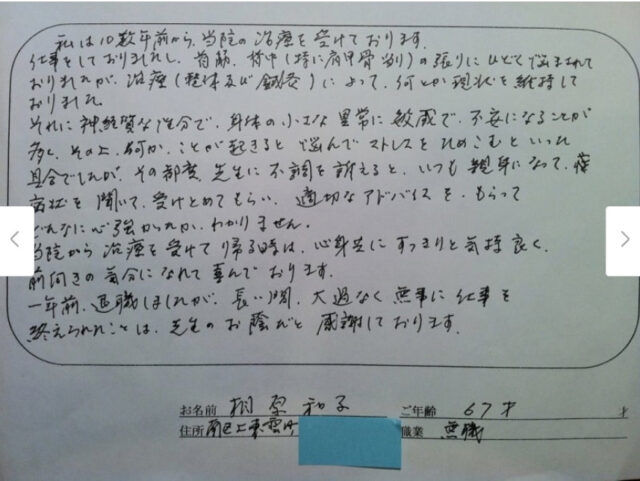 私は10数年前から、当院の治療を受けております。
仕事をしておりましたし、首筋、背中(特に肩甲骨辺り)の張りにひどく悩まされて
おりましたが、治療(整体及び鍼灸)によって、何とか現状を維持して
おりました。
それに神経質な性分で、身体の小さな異常に敏感で、不安になることが
多く、その上、何か、ことが起きると悩んでストレスをためこむといった
具合でしたが、その都度、先生に不調を訴えると、いつも親身になって、
症状を聞いて、受けとめてもらい、適切なアドバイスを、もらって
どんなに心強かったか、わかりません。
当院から治療を受けて帰る時は、心身共にすっきりと気持良く、
前向きの気分になれて喜んでおります。
一年前、退職しましたが、長い間、大過なく無事に仕事を
終えられたことは、先生のお陰だと感謝しております。
お名前 桐原和子 ご年齢 67才 才
住所 南区上東雲町 職業 無職